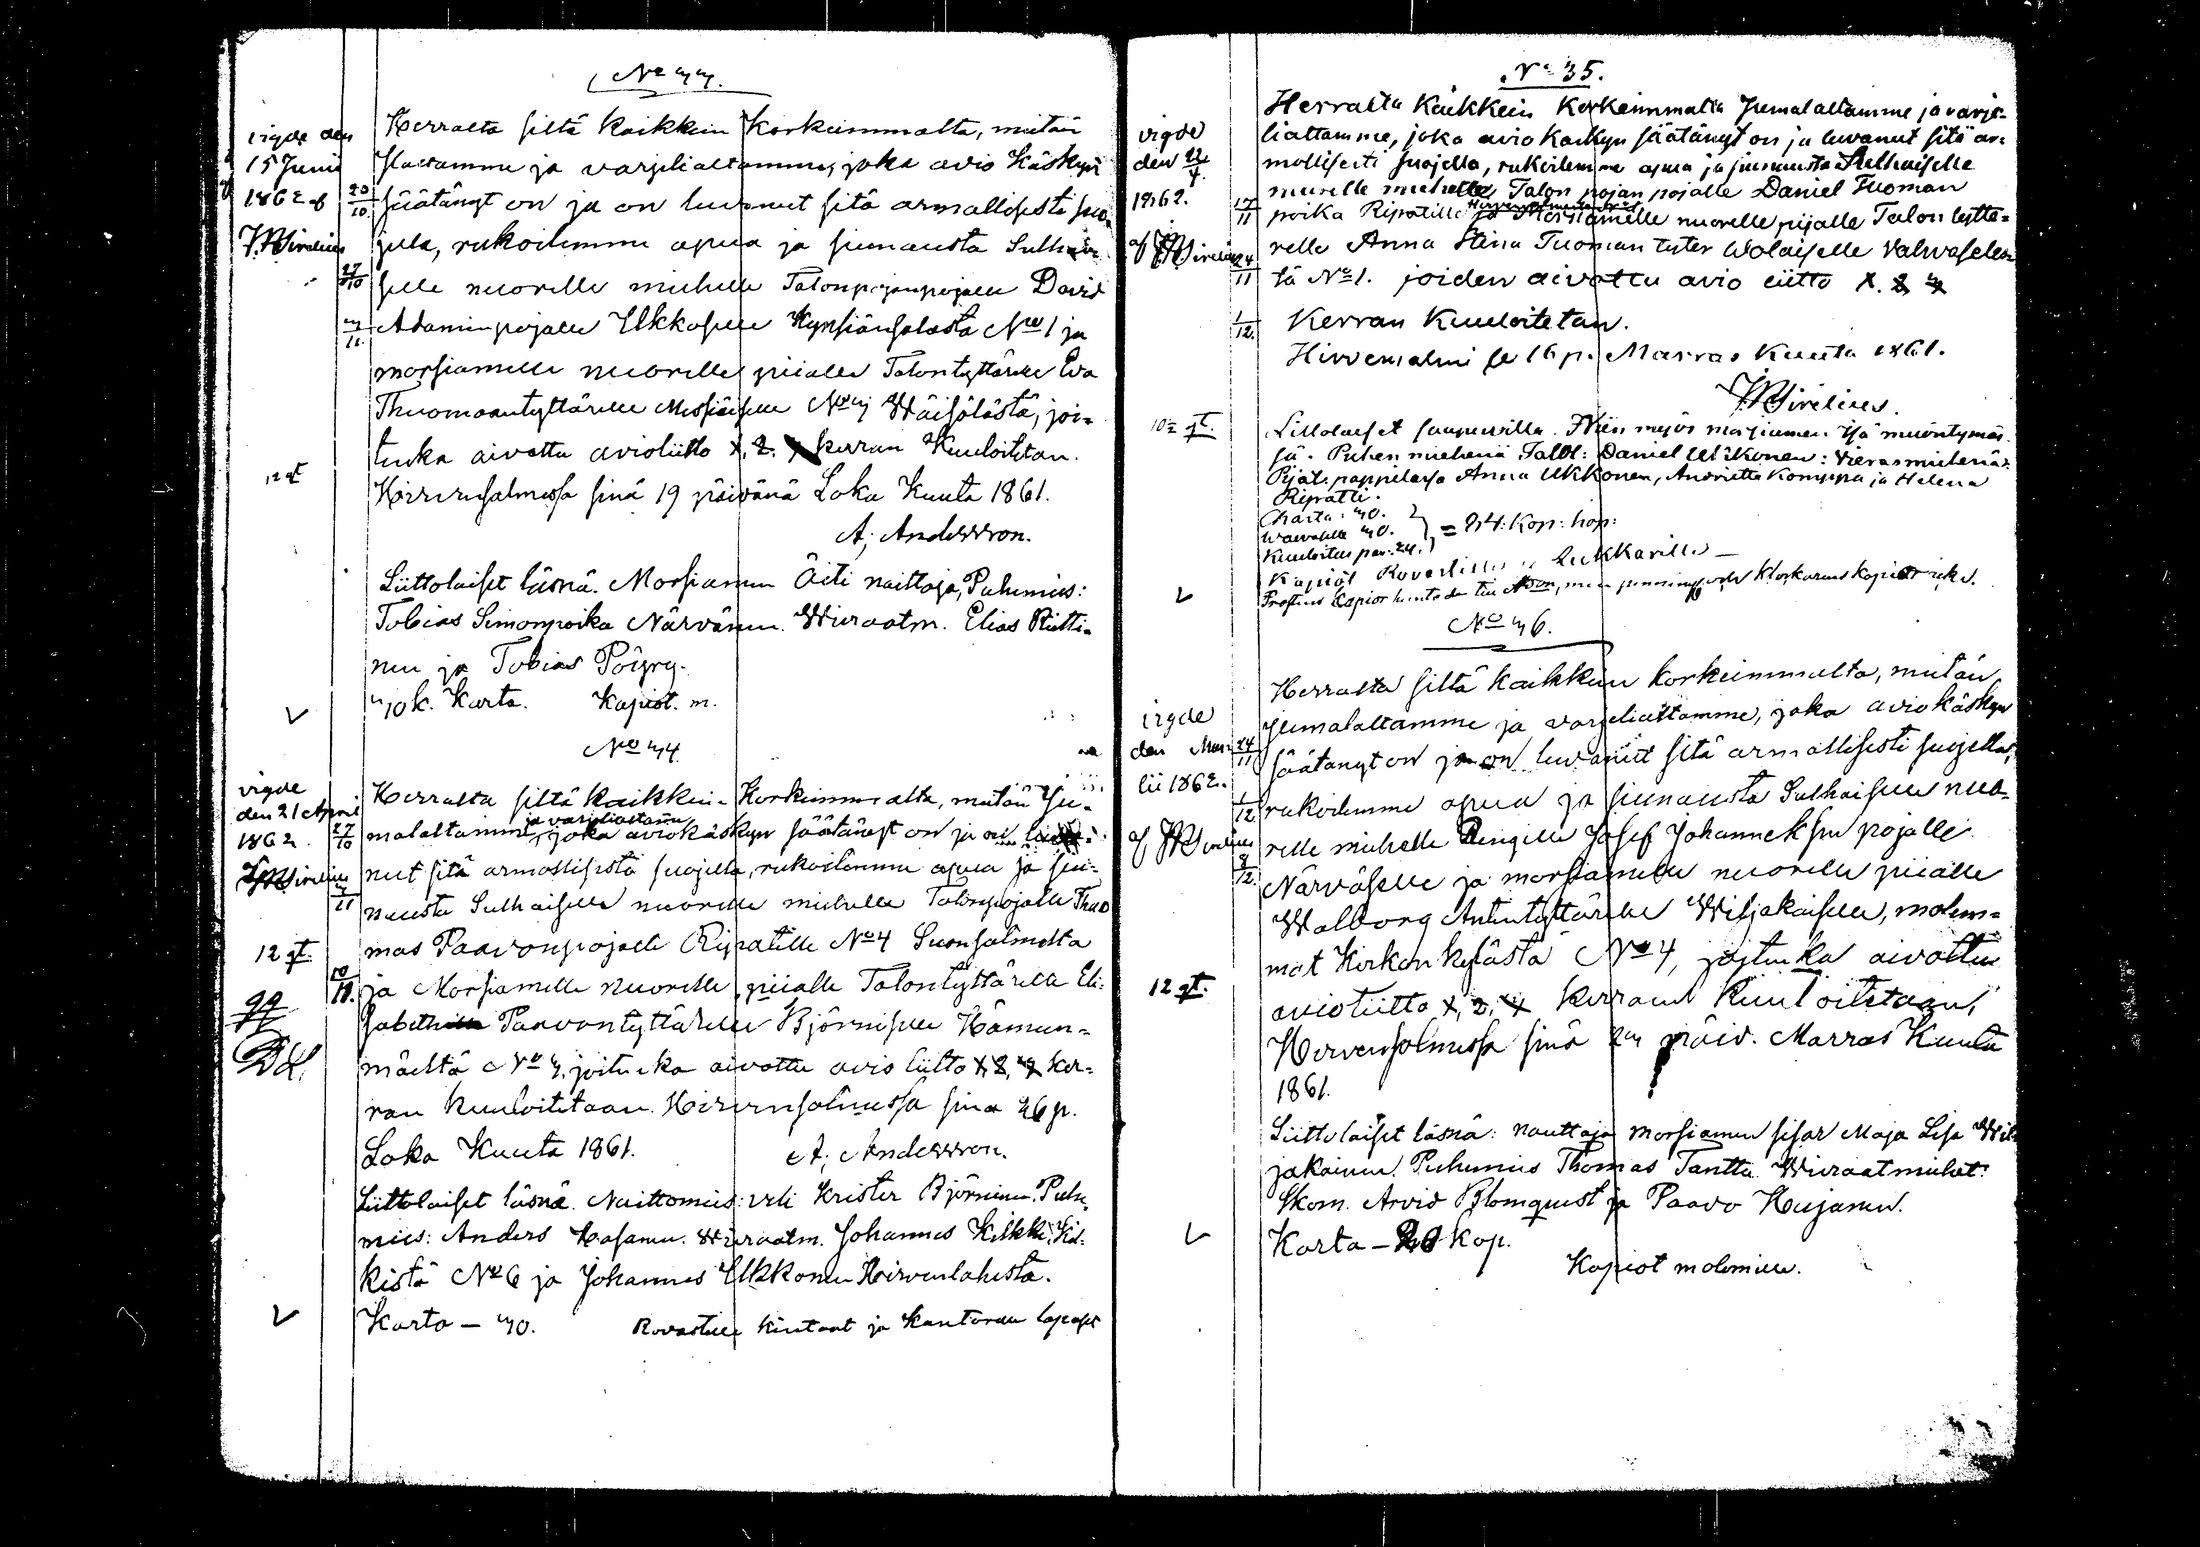 No 33.
vigde den
15 Juni
1862 af
Herralta siltä kaikkein korkeimmalta, meitän
staxamme ja varjeliattamme, joka avio käskyn
20/10 säätänyt on ja on luvannut sitä armallisesti suo-
jella, rukoilemme apua ja siunausta Sulhai-
27/10 selle nuorelle miehelle Talonpojanpojalle David
3/11 Adaminpojalle Ukkoselle Kynsiänsalosta No 1 ja
morsiamelle nuorelle piialle Talontyttärelle Eva
Thuomaantyttärelle No 3 Wäisälästä, joi-
tenka aivottu avioliitto 1. 2. 3 kerran Kuuloitetan.
12 qt
Hirvensalmessa sinä 19 päivänä Loka Kuuta 1861.
A; Andersson.
Liittolaiset läsnä. Morsiamen Äiti naittaja, Puhemies:
Tobias Simonpoika Närvänen. Wieraatm. Elias Rietti-
nen ja Tobias Pöyry.
30 k. Karta. Kapiot. m.
No 34
vigde
den 21 April
1862
Herralta siltä kaikkein Korkeimmalta, meitän Ju-
ja varjeliattame
27/10 malaltamme, joka aviokäskyn säätänyt on ja on
nut sitä armollisesta suojella, rukoilemme apua ja siu-
3/11 nausta Sulhaiselle nuorelle miehelle Talonpojalle Thuo
12 qt.
mas Paavonpojalle Ripatille No 4 Suonsalmelta
10/11. ja Morsiamelle nuorelle piialle Talontyttärelle Eli-
sabeth Paavontyttärelle Björniselle Hämeen-
mäeltä No 3, joitenka aivottu avio liitto 1, 2, 3 ker-
ran kuuloitetaan. Hirvensalmessa sinä 26 p.
Loka Kuuta 1861. A; Andersson.
Liittolaiset läsnä. Naittomies: veli Krister Björninen. Puhe-
mies: Anders Hasanen. Wieraatm. Johannes Kilkki, Kil-
kistä No 6 ja Johannes Ukkonen Hirvenlahesta.
Karta — 30. Rovastille kintaat ja Kanturille lapaset
No 35.
vigde
den 22/4
1862.
Herralta Kaikkein Korkeimmalta Jumalaltamme ja varje-
liattamme, joka avio Kaskyn säätänyt on ja luvanut sitä ar-
mollisesti suojella, rukoilemme apua ja siunausta Sulhaiselle
nuorelle miehelle Talon pojan pojalle Daniel Tuoman
17/11 poika Ripatille ja Morsiamelle nuorelle pijalle Talon tyttä-
24/11 relle Anna Stina Tuoman tyter Wolaiselle Vahvasele-
tä No 1. joiden aivottu avio liitto 1. 2 3
1/12. Kerran Kuuloitetan.
Hirvensalmi se 16 p. Marras Kuuta 1861.
10 qt.
Liitolaiset saapuvilla. Niin myös morsiamen Isä myöntymäs-
sä. Puhen miehenä Tall: Daniel Ukkonen: Vierasmiehenä:
Pijat. pappilasa Anna Ukkonen, Andrietta Komppa ja Helena
Ripatti.
Charta: 30.
Waivalle 30.
Kuuloitus par. 24.
= 84: Kop: hop:
Kapiot Rovastille ja lukkarille —
No 36.
vigde
lii 1862.
Herralta siltä kaikkein korkeimmalta, meitän
Jumalaltamme ja varjeliattamme, joka aviokäskyn
24/11 säätanyt on ja on luvanut sitä armallisesti suojella,
1/12 rukoilemme apua ja siunausta Sulhaiselle nuo-
relle miehelle Rengille Josef Johanneksen pojalle
8/12. Närväselle ja morsiamelle nuorelle piialle
Walborg Antintyttärelle Wiljakaiselle, molem-
mat Kirkon kylästä No 4, joitenka aivottu
12 qt.
avioliitto 1, 2, 3 kerran Kuuloitetaan,
Hirvensalmessa sinä 23 päiv. Marras Kuuta
1861.
Liittolaiset läsnä: nauttaja morsiamen sisar Maja Lisa Wil-
jakainen. Puhemies Thomas Tantta. Wieraatmiehet:
Skom. Arvid Blomquist ja Paavo Kujanen.
Karta — 20 kop.
Kapiot molemille.